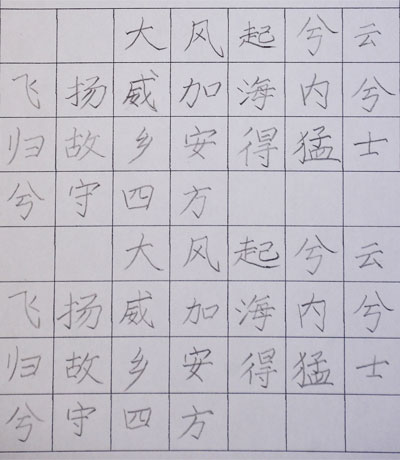 大风起兮云
飞扬威加海内兮
归故乡安得猛士
兮守四方
大风起兮云
飞扬威加海内兮
归故乡安得猛士
兮守四方